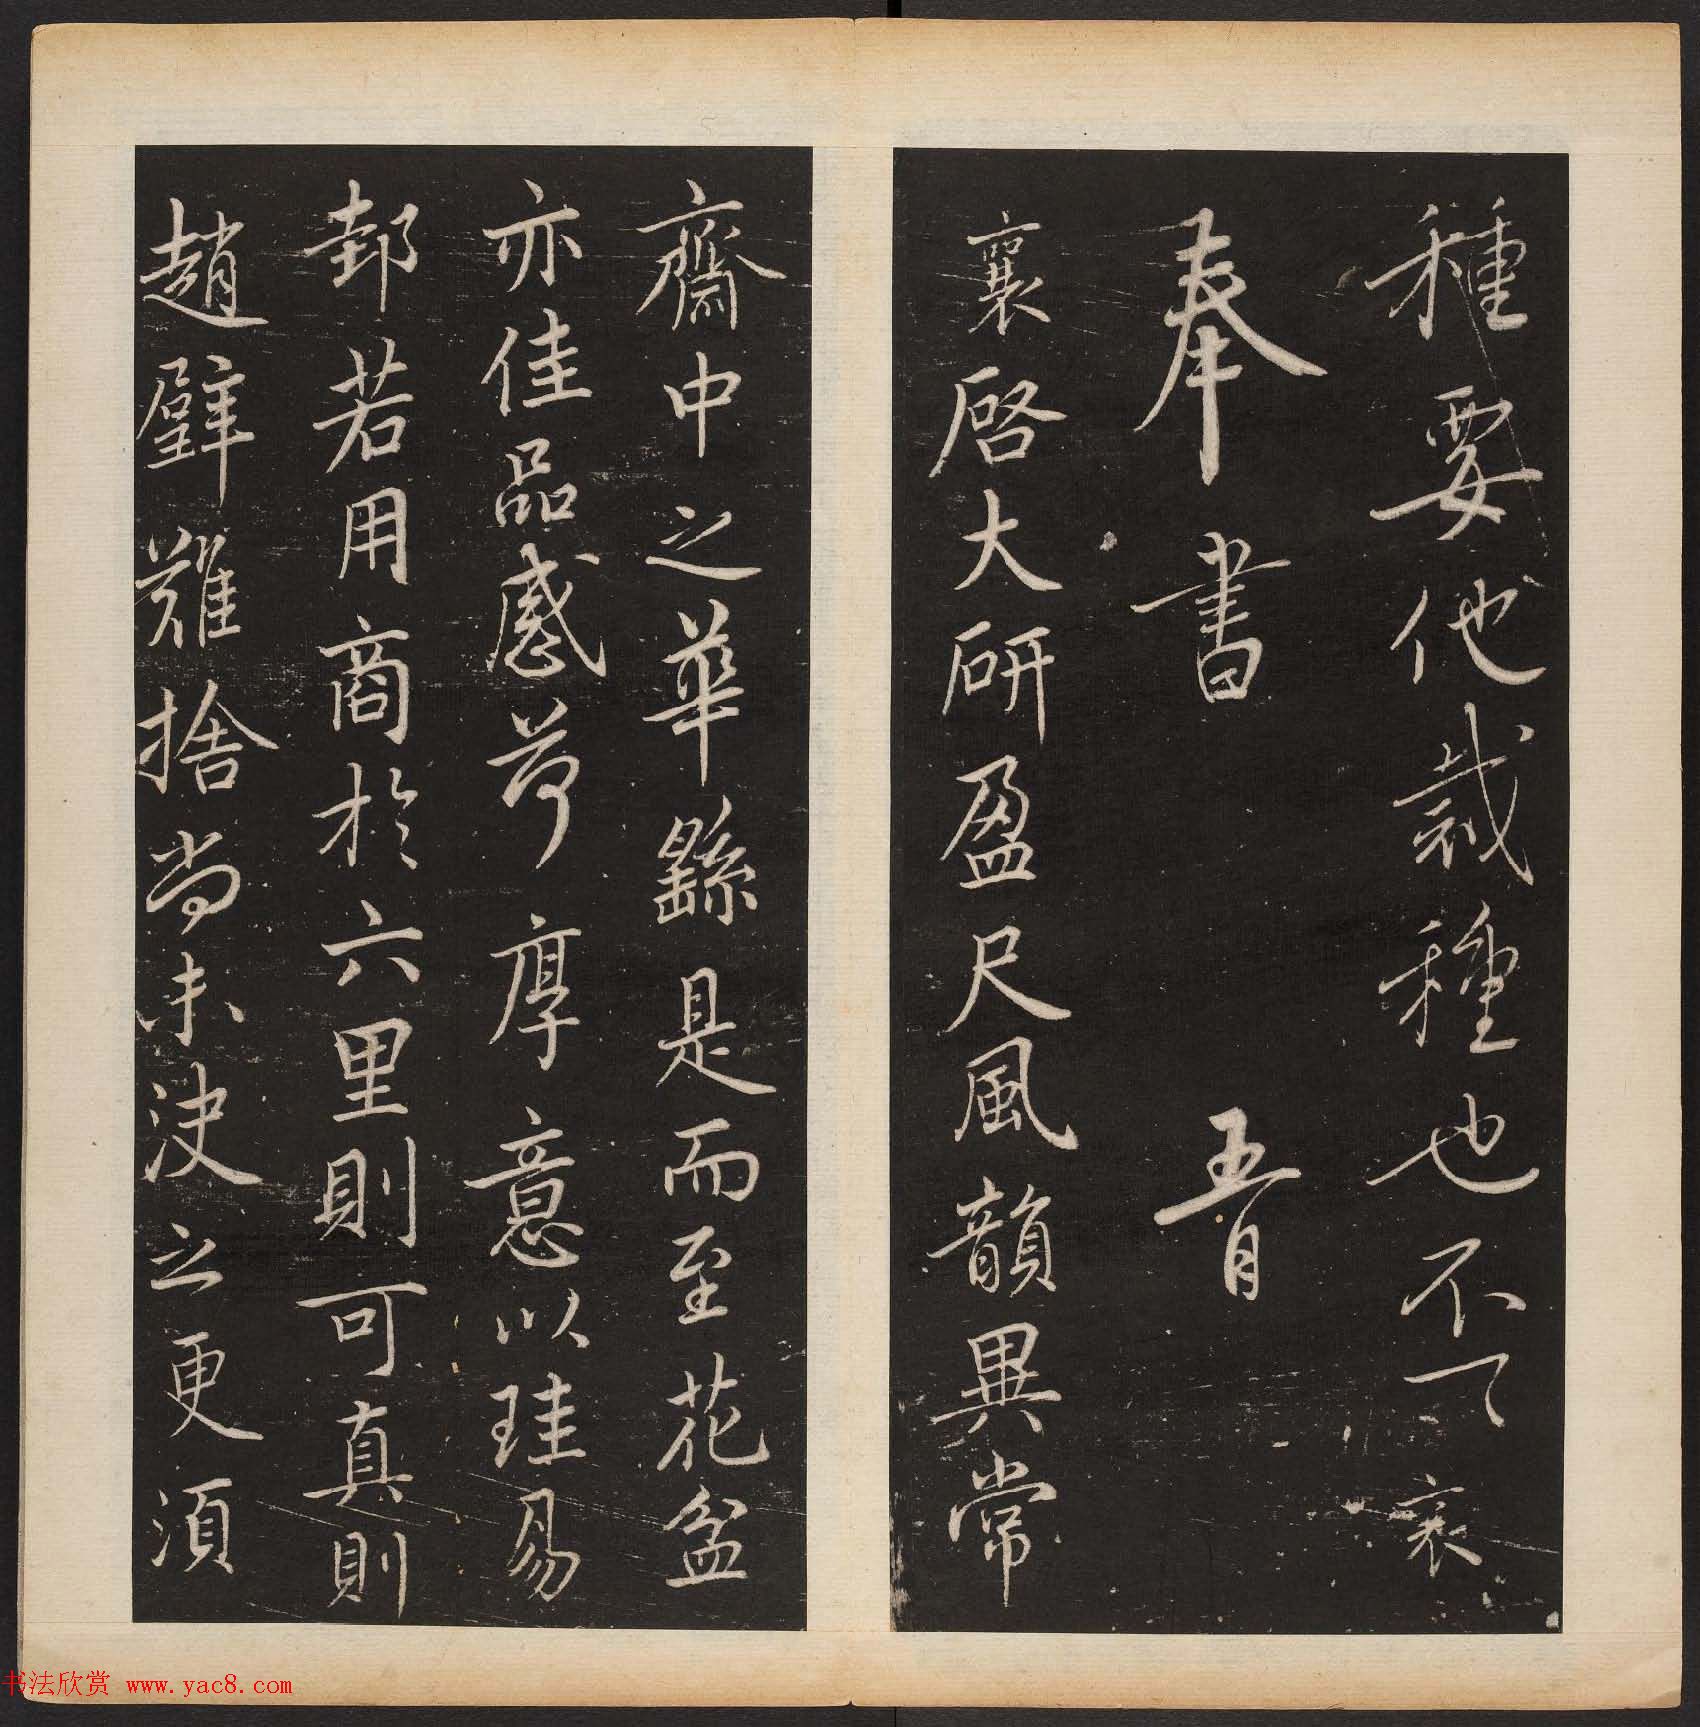 種要他栽種也不一一襄
奉書 五月
襄啓大研盈尺風韻異常
齋中之華繇是而至花盆
亦佳品感荷厚意以珪易
邽若用商於六里則可真則
趙璧難捨尚未決之更須
书法欣赏 www.yac8.com